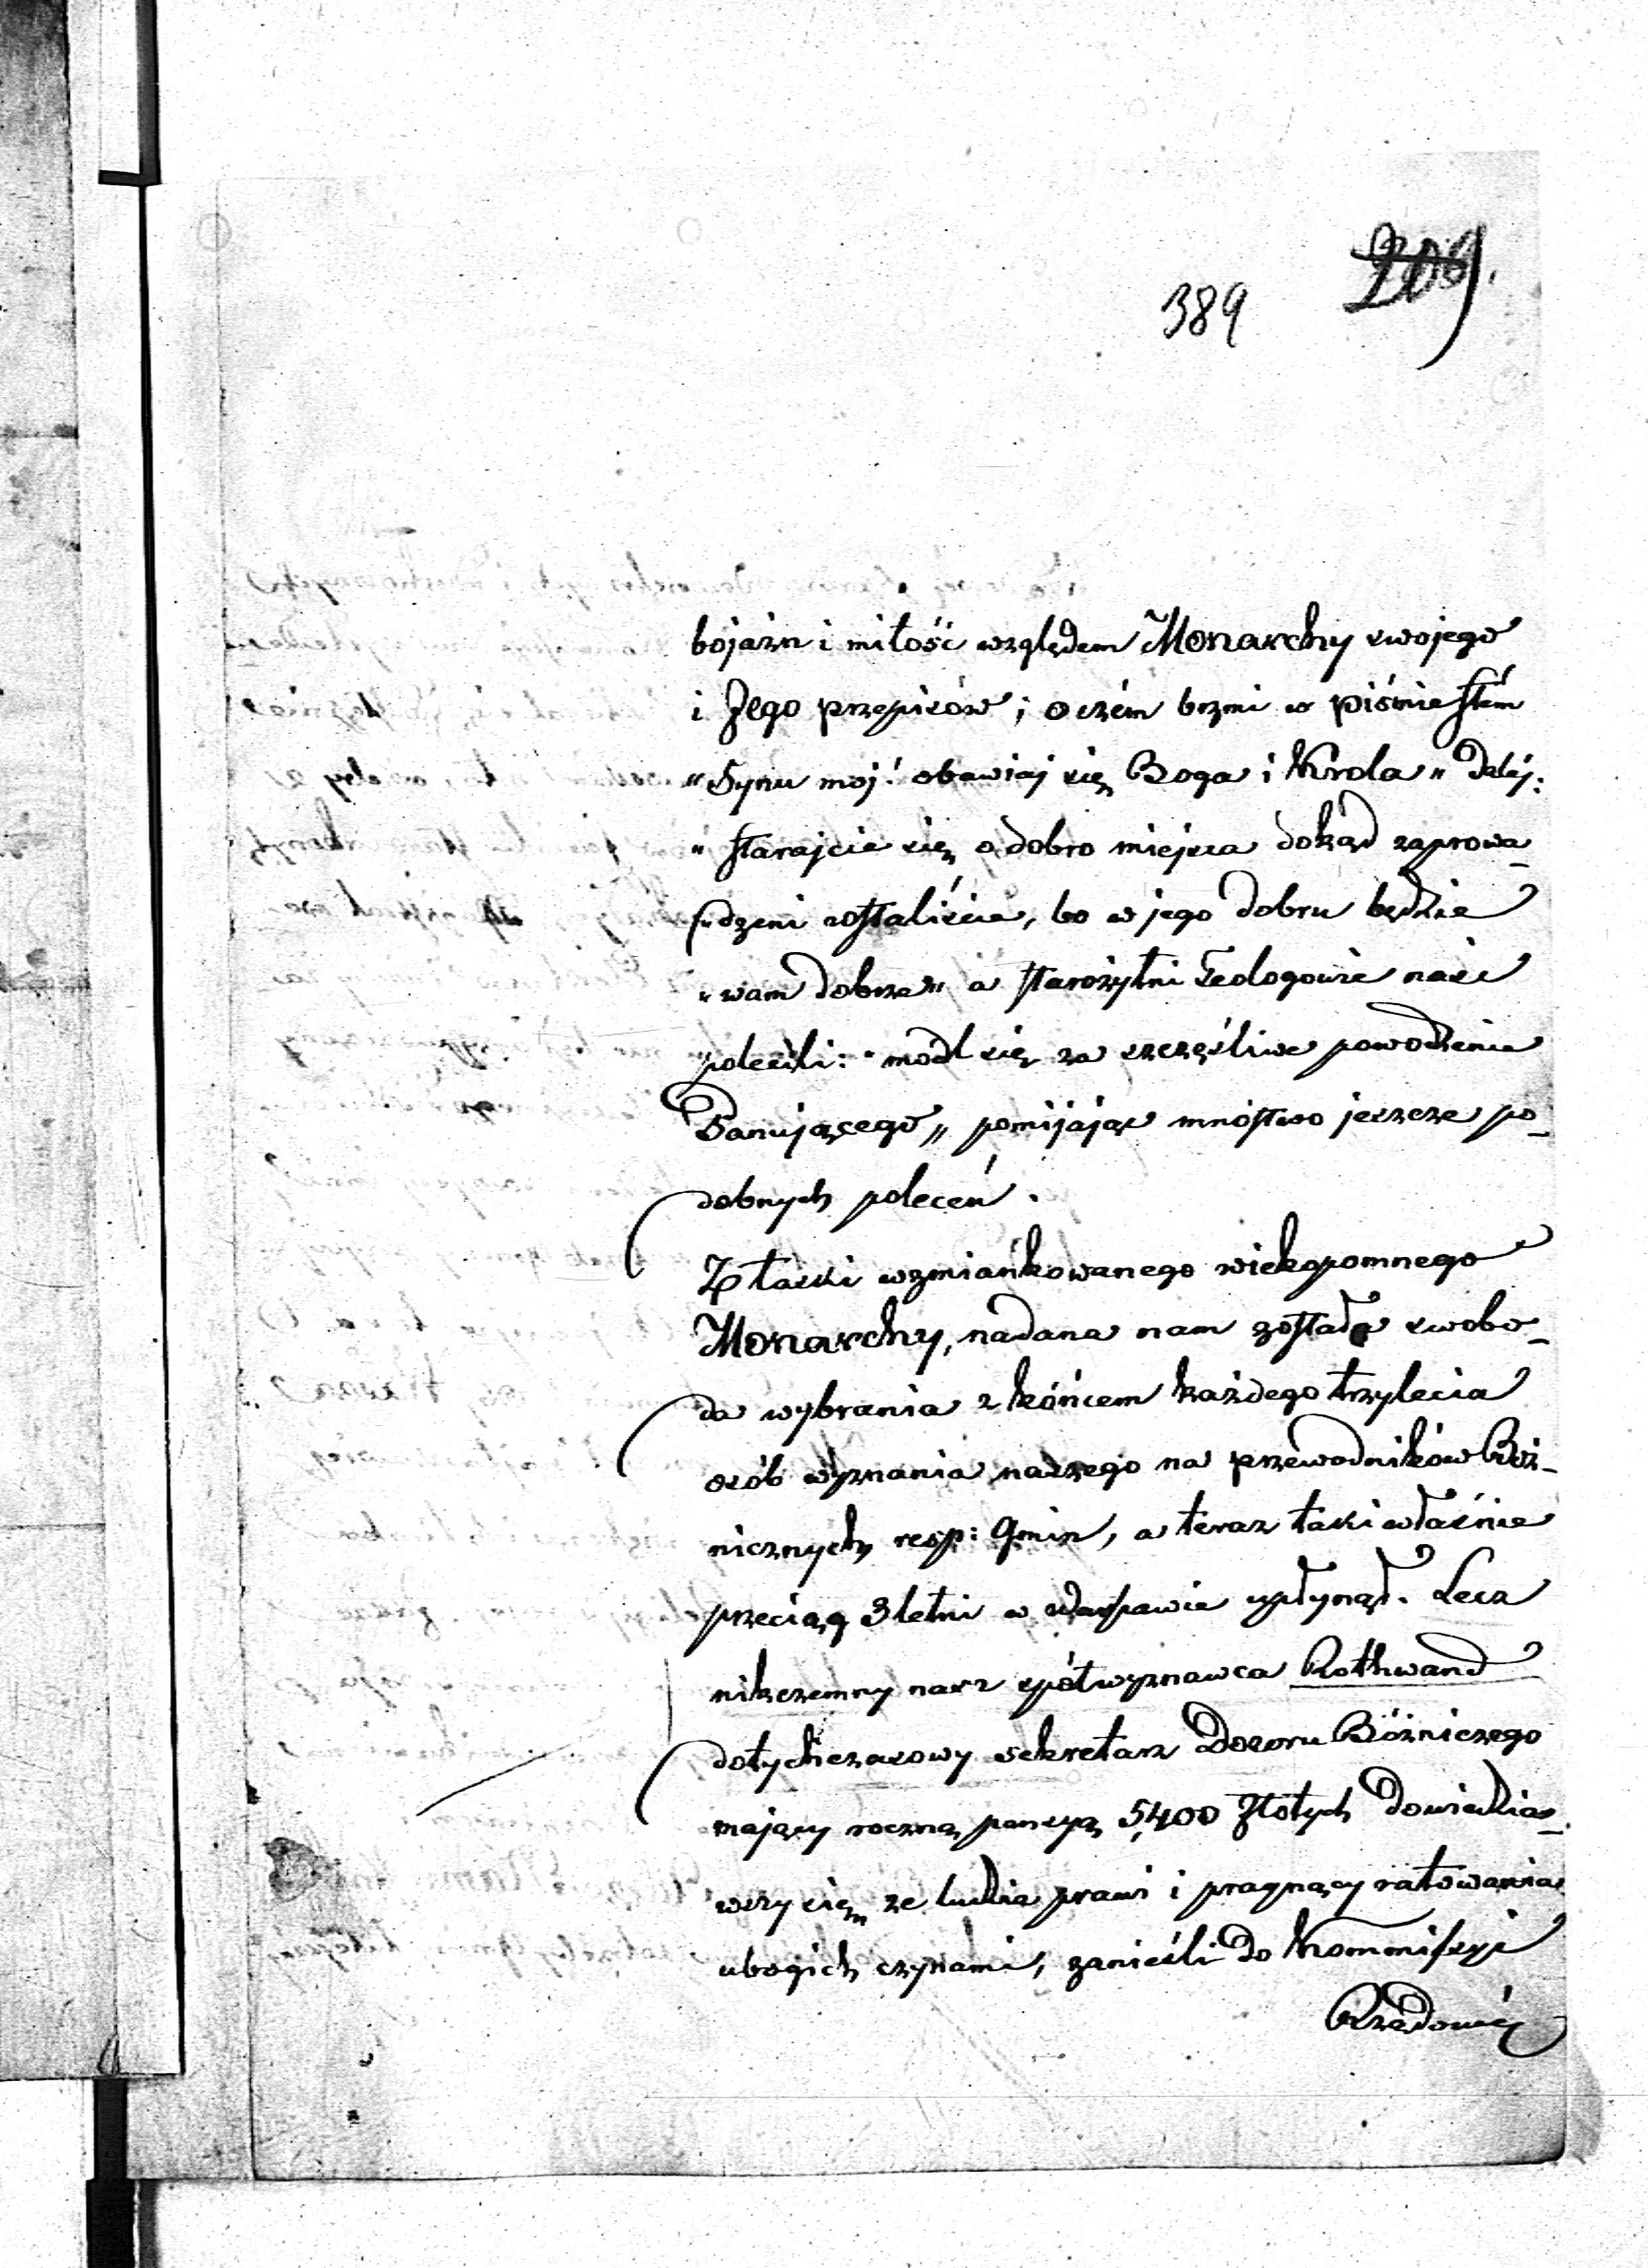 209.
389
bojaźn i miłość względem Monarchy swojego
i Jego przepisów; o czém brzmi w piśmie Stém
"Synu moj! obawiaj się Boga i Króla" daléj:
"starajcie się o dobro miejsca dokąd zaprowa-
"dzeni zostaliście, bo w jego dobru będzie
"wam dobrze" a starożytni Teologowie nasi
polecili: "modl się za szczęśliwe powodzenie
Panującego" pomijając mnóstwo jeszcze po-
dobnych poleceń.
Z łaski wzmiańkowanego wiekopomnego
Monarchy, nadana nam została swobo-
da wybrania z końcem każdego trzylecia
osób wyznania naszego na przewodników Boż-
nicznych resp: Gmin, a teraz taki właśnie
przeciąg 3letni w Warszawie upłynął. Lecz
nikczemny nasz spółwyznawca Rothwand
dotychczasowy sekretarz Dozoru Bóźniczego
mający roczną pensyą 5,400 Złotych dowiedzia-
wszy się, ze ludzie prawi i pragnący ratowania
ubogich czynami, zanieśli do Kommissyi
Rządowéj